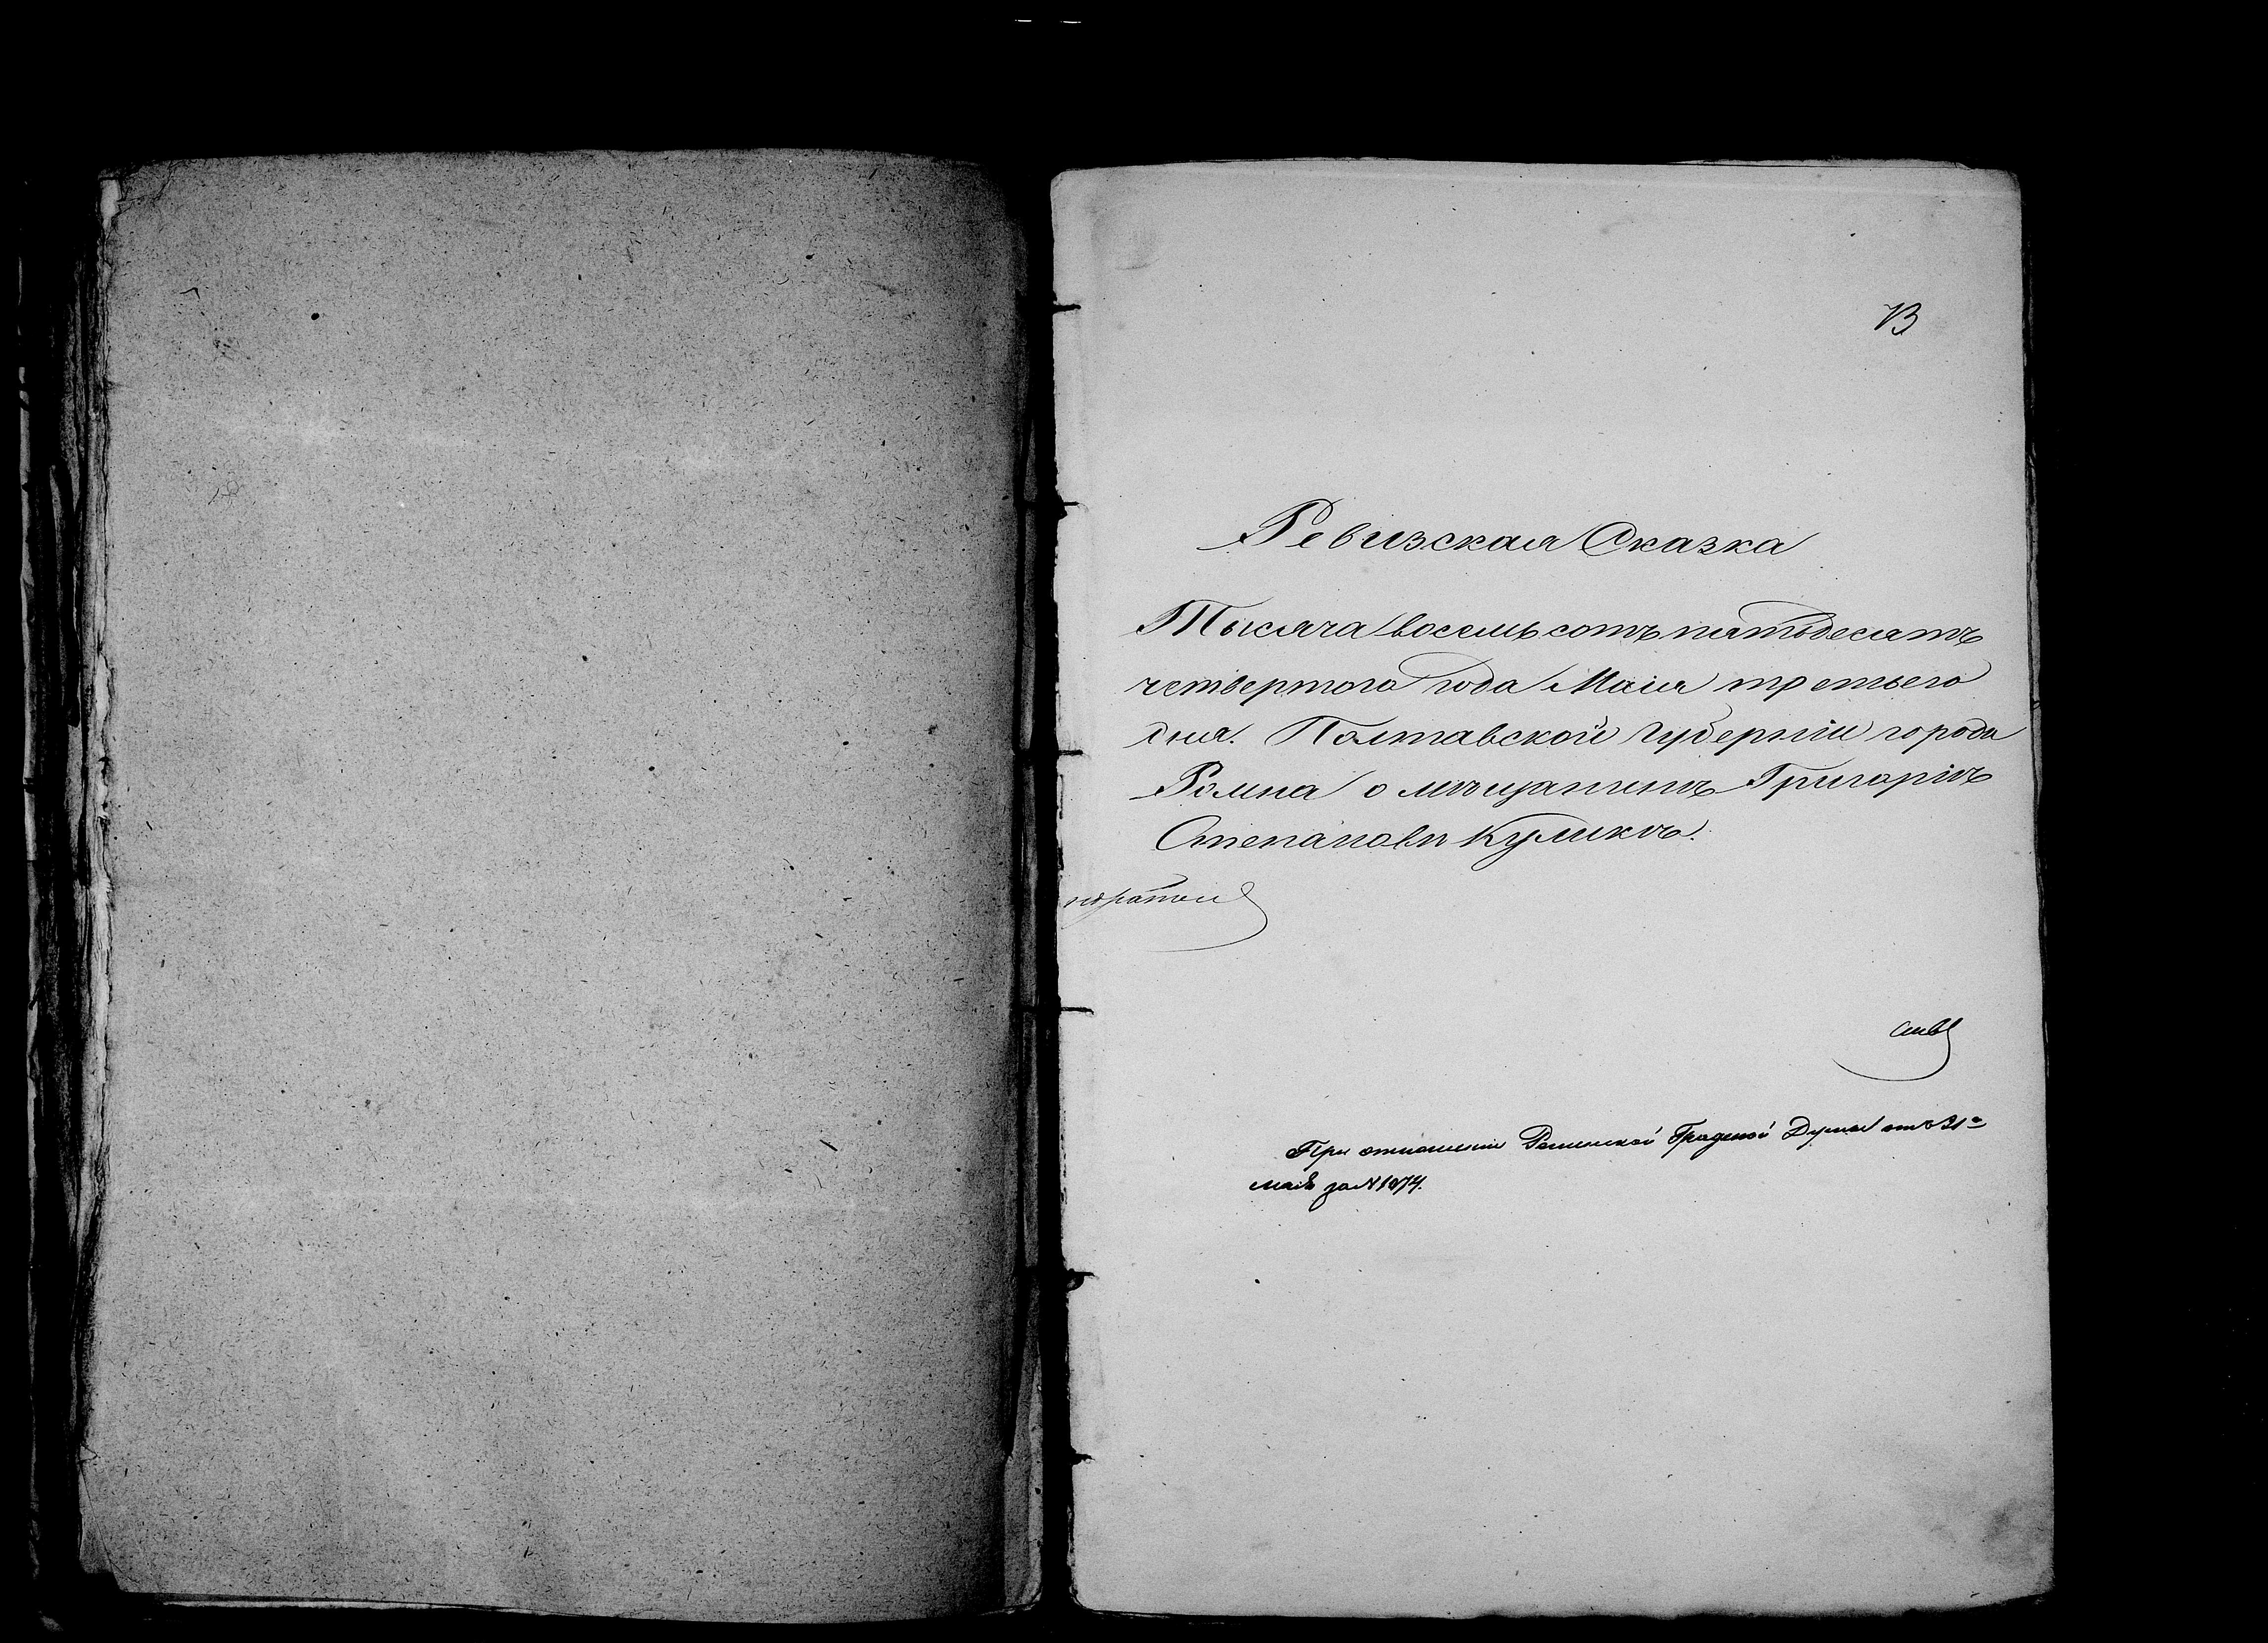 73
Ревизская Сказка
Тысяча восемь сотъ пятьдесятъ
четвертого года Маія третьего
дня. Полтавской губерніи города
Ромна о мѣщанинѣ Григоріѣ
Степановѣ Куликѣ.
При отношеніи Роменской Градской Думы отъ 31го
мая за N 1074.